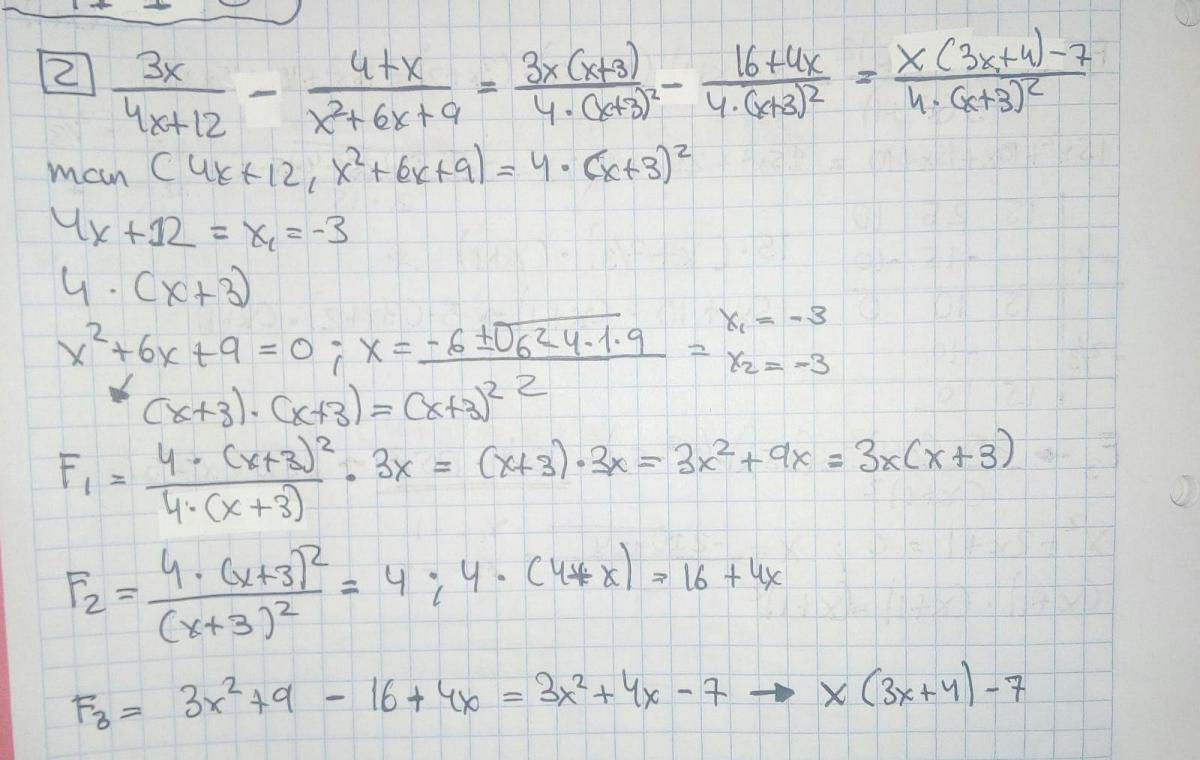 2 3x/(4x+12) - (4+x)/(x²+6x+9) = 3x(x+3)/(4·(x+3)²) - (16+4x)/(4·(x+3)²) = (x(3x+4)-7)/(4·(x+3)²)
mcm (4x+12, x²+6x+9) = 4·(x+3)²
4x+12 = x₁ = -3
4·(x+3)
x²+6x+9 = 0; x = (-6 ± √(6²-4·1·9))/2 = x₁ = -3 x₂ = -3
(x+3)·(x+3) = (x+3)²
F₁ = (4·(x+3)²)/(4·(x+3)) · 3x = (x+3)·3x = 3x²+9x = 3x(x+3)
F₂ = (4·(x+3)²)/((x+3)²) = 4; 4·(4+x) = 16+4x
F₃ = 3x²+9 - 16+4x = 3x²+4x-7 → x(3x+4)-7